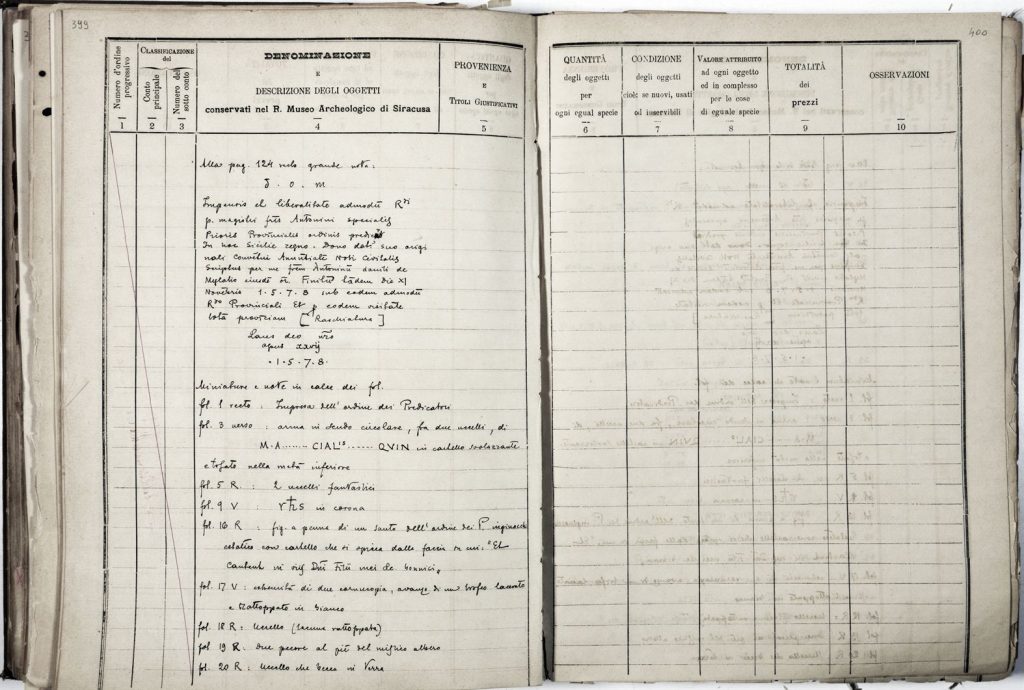 399
Numero d'ordine progressivo
CLASSIFICAZIONE del
Conto principale
Numero del sotto conto
DENOMINAZIONE
E
DESCRIZIONE DEGLI OGGETTI
conservati nel R. Museo Archeologico di Siracusa
PROVENIENZA
E
TITOLI GIUSTIFICATIVI
1 2 3 4 5
Alla pag. 124 recto grande nota:
D . O . M
Impensis et liberalitate admodũ R.di
p. magistri frĩs Antonini specialis
Prioris Provincialis ordinis predic
In hoc Sicilie regno. Dono dat. suo origi
nali Conventui Annuntiate Noti Civitatis
Scriptus per me frẽm Antoninũ de
die XI
1.5.7.8 sub eodem admodũ
R.do Provinciali Et p eodem visitate
totã provĩciam [Raschiatura]
Laus deo
opus xxvij
.1.5.7.8.
Miniature e note in calce dei fol.
fol. 1 recto : Impresa dell'ordine dei Predicatori
fol. 3 verso : arma in scudo circolare, fra due uccelli, di
M.A....... CIAL.is ....... QVIN in cartello svolazzante
e tosato nella metà inferiore
fol. 5 R. : 2 uccelli fantastici
fol. 9 V : in corona
fol. 16 R : fig. a penna di un santo dell'ordine dei P. inginocchi
estatico con cartello che si spicca dalla faccia su cui: "Et
fol. 17 V : estremità di due cornucopia, avanzo di un trofeo lacerato
e rattoppato in bianco
fol. 18 R : Uccello (lacuna rattoppata)
fol 19 R. Due pecore al piè del mistico albero
fol. 20 R : Uccello che becca in terra
400
QUANTITÀ
degli oggetti
per
ogni egual specie
CONDIZIONE
degli oggetti
cioè: se nuovi, usati
od inservibili
VALORE ATTRIBUITO
ad ogni oggetto
ed in complesso
per le cose
di eguale specie
TOTALITÀ
dei
prezzi
OSSERVAZIONI
6 7 8 9 10